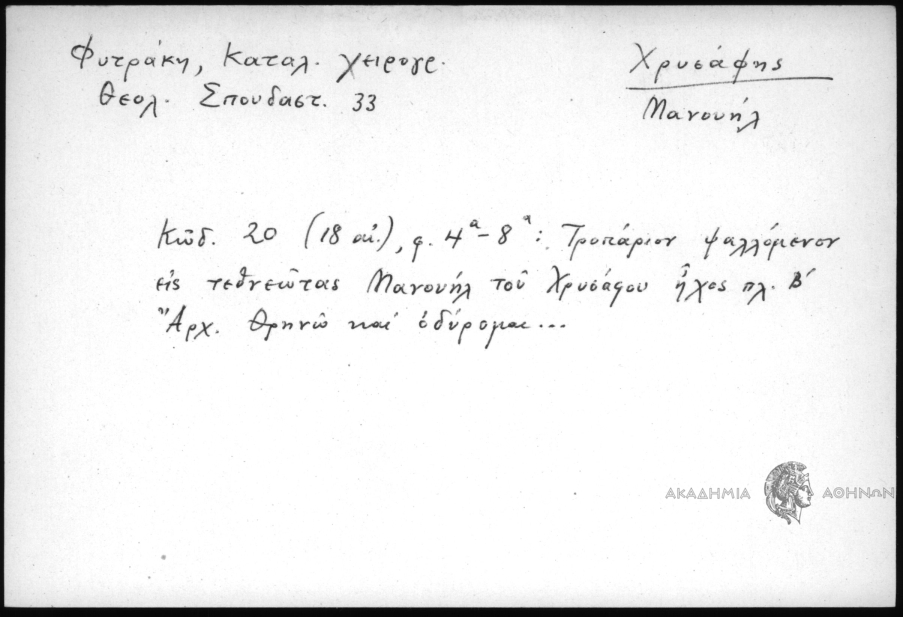 Φυτράκη, Καταλ. χειρογρ.
Θεολ. Σπουδαστ. 33
Χρυσάφης
Μανουήλ
Κῶδ. 20 (18 αἰ.), φ. 4α-8α: Τροπάριον ψαλλόμενον
εἰς τεθνεῶτας Μανουήλ τοῦ Χρυσάφου ἦχος πλ. β′
Ἀρχ. Θρηνῶ καί ὀδύρομαι...
ΑΚΑΔΗΜΙΑ ΑΘΗΝΩΝ